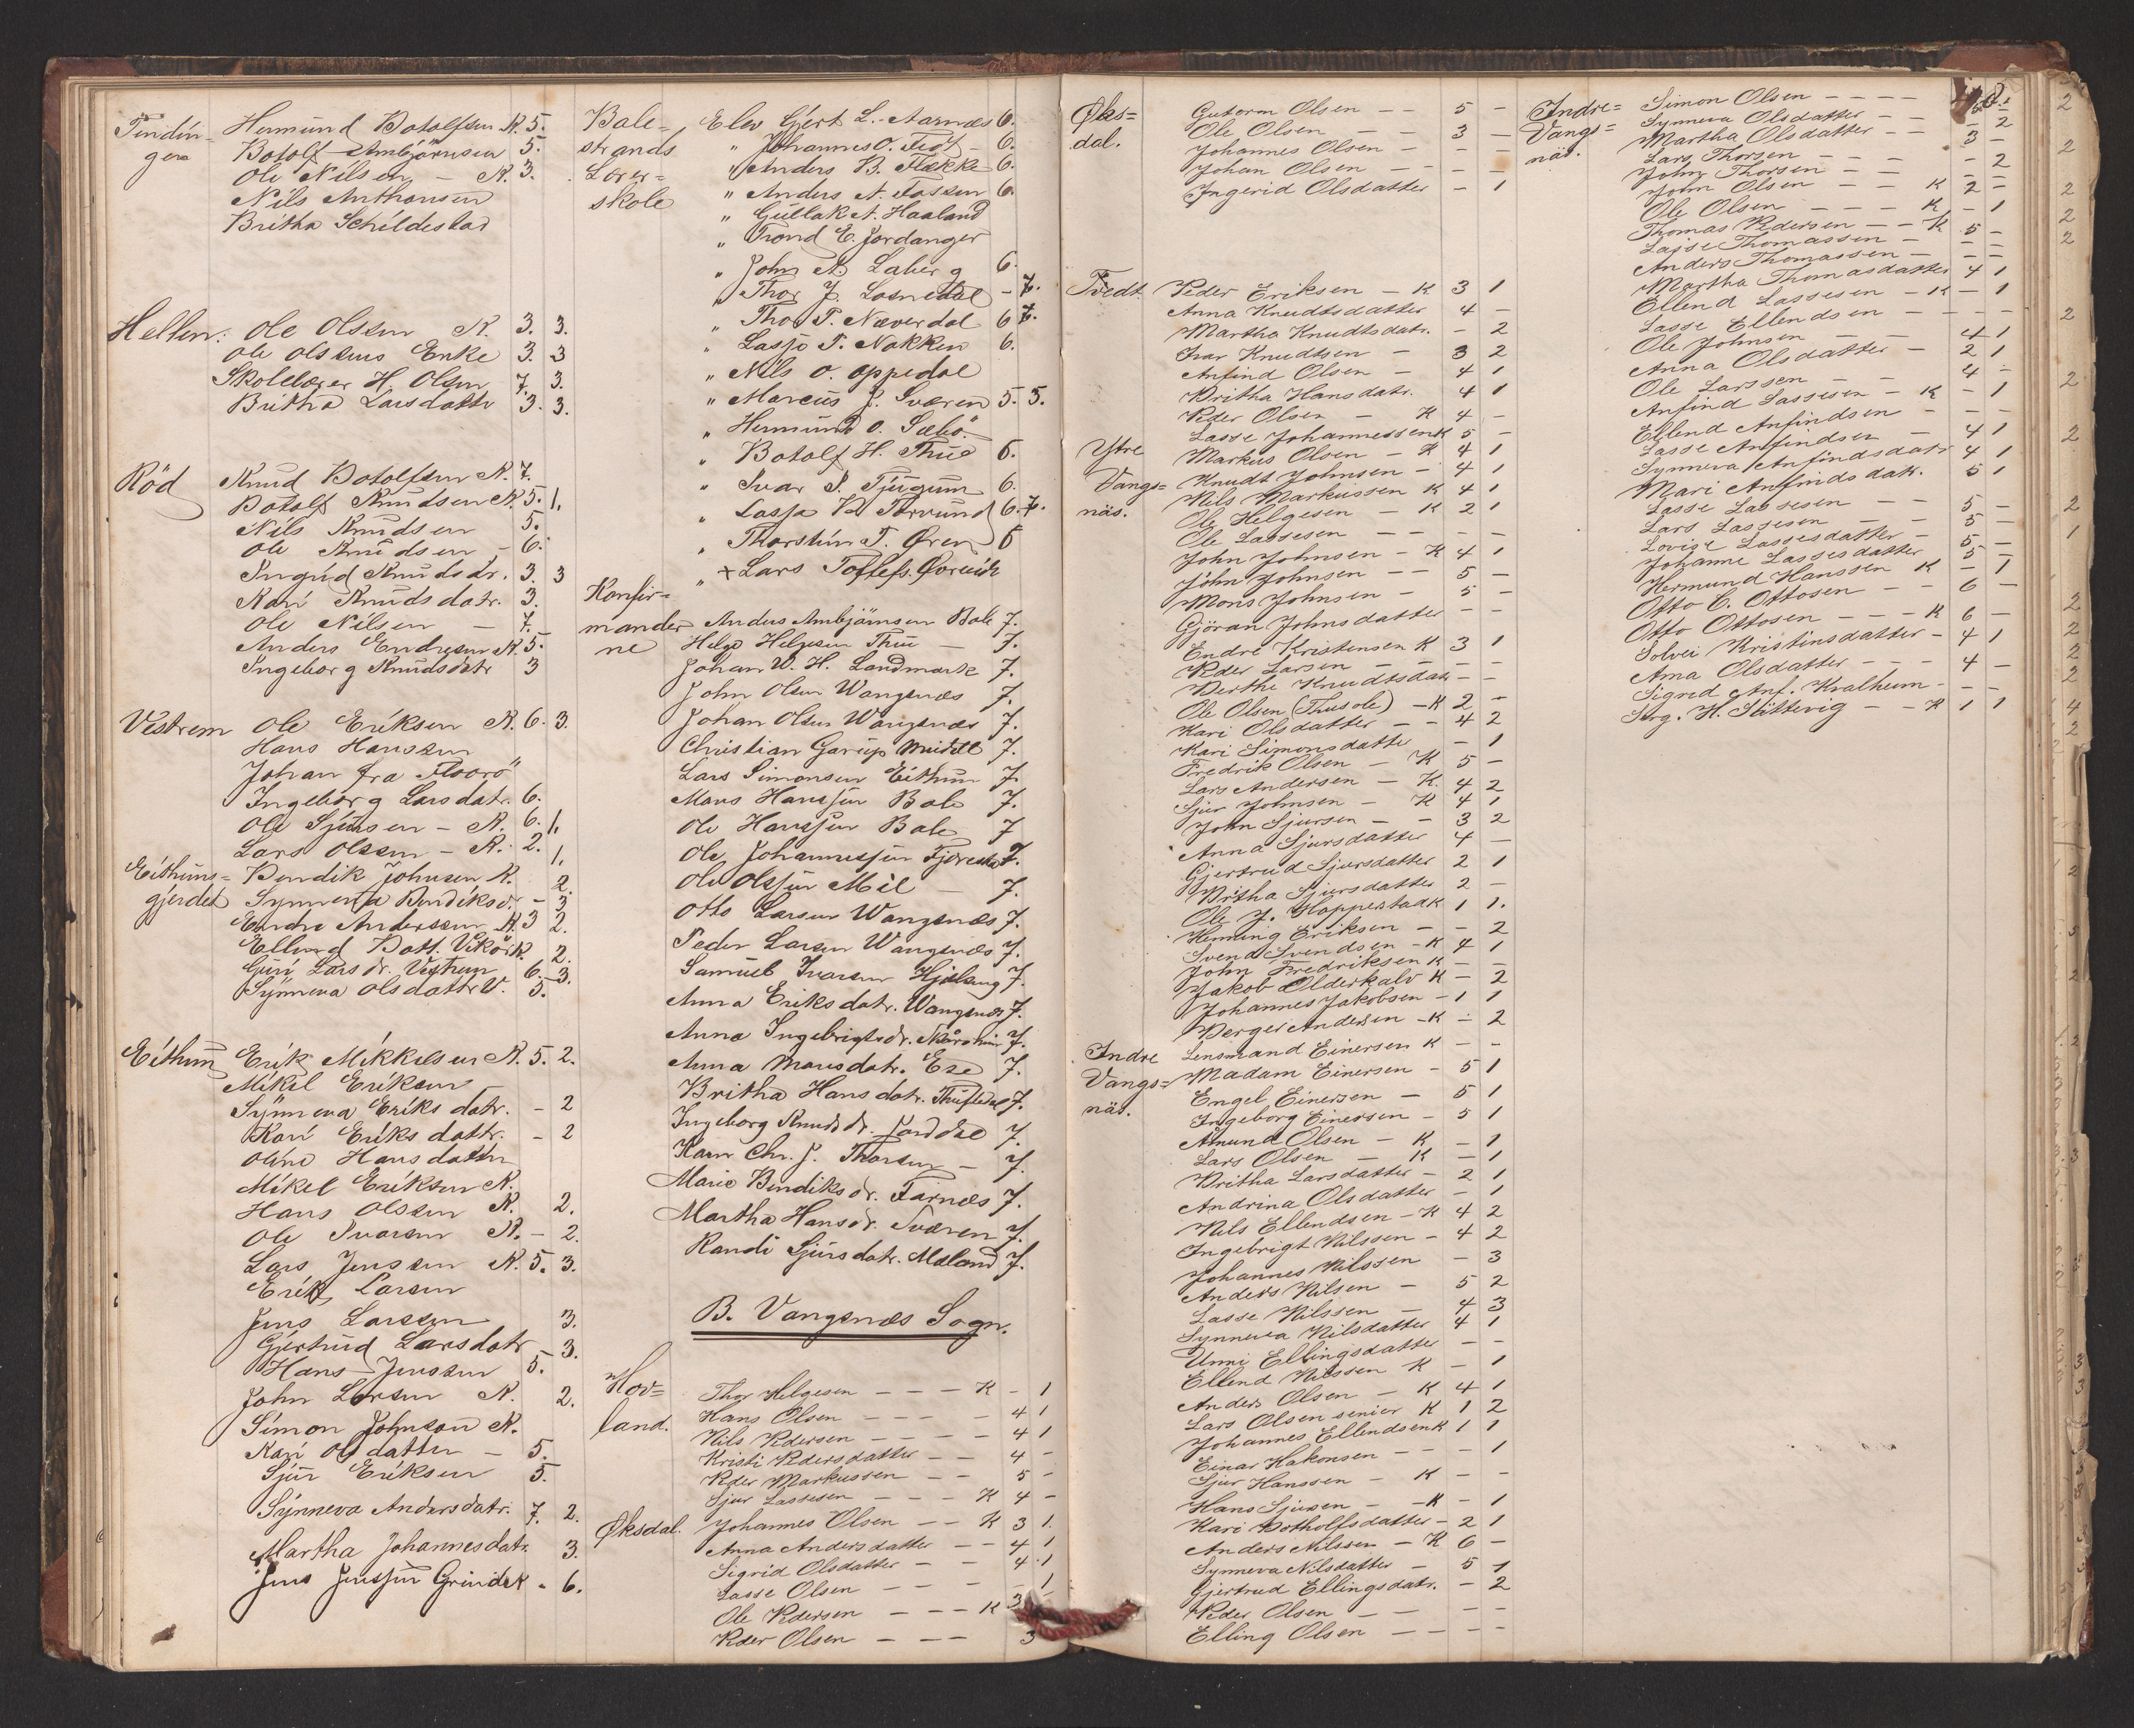 Tindin- Hermund Botolfsen K. 5.
gen Botolf Ambjörnsen 5.
Ole Nilsen - K. 3.
Nils Anthonsen
Britha Schildestad
Hellin: Ole Olssen K. 3. 3.
Ole Olssens Enke 3. 3
Skolelærer H. Olsen 7. 3.
Britha Larsdatter 3. 3.
Röd Knud Botolfsen K. 7.
Botolf Knudsen K. 5. 1.
Nils Knudsen 5.
Ole Knudsen - 6.
Ingrid Knudsdr. 3. 3
Kari Knudsdatr. 3.
Ole Nilsen - 7.
Anders Endresen K. 5.
Ingeborg Knudsdatr 3
Vestrem Ole Eriksen K. 6. 3.
Hans Hanssen
Johan fra Florö
Ingeborg Larsdatr. 6.
Ole Sjursen - K. 6. 1.
Lars Olssen - K. 2. 1.
Eithuns= Bendik Johnsen K. 2.
gjerdet Synneva Bendiksdr. - 3
Endre Anderssen K. 3 2.
Ellend Bott. Vikör K. 2.
Guri Larsdr. Vestrem 6. 3.
Synneva Olsdatter V. 5.
Eithun Erik Mikkelsen K. 5. 2.
Mikel Eriksen
Synneva Eriksdatr. - 2
Kari Eriksdattr. - 2
Oline Hansdatter
Mikel Eriksen K.
Hans Olssen K. 2.
Ole Ivarsen K. - 2.
Lars Jenssen K. 5. 3.
Erik Larsen
Jens Larssen 3.
Gjertrud Larsdatr 3.
Hans Jenssen 5.
John Larsen K. 2.
Simon Johnson K.
Kari Olsdatter - 5.
Sjur Eriksen 5.
Synneva Andersdatr. 7. 2.
Martha Johannesdatr. 3.
Jens Jenssen Grindek - 6.
Bale= Elev Gjert L. Aarnæs 6.
strands " Johannes O. Feidt - 6.
Lærer= " Anders B. Flække 6.
skole " Anders A. Fossen 6.
" Gullak A. Haaland
" Trond E. Jordanger
" John A. Laberg 6.
" Thor J. Losnedal - 7.
" Thor T. Næverdal 6 7.
" Lasse T. Nokken 6.
" Nils O. Oppedal
" Marcus J. Sværen 5. 5.
" Hermund O. Sæbö.
" Botolf H. Thue 6.
" Ivar S. Tjugum 6.
" Lasse V. Torvund 6. 7.
" Thorstein T. Øren 6
" + Lars Tollefs.
Konfir=
mander Anders Ambjörnsen Bale 7.
ne Helge Helgesen Thue - 7.
Johan W. H. Landmark 7.
John Olsen Wangsnæs 7.
Johan Olsen Wangsnæs 7.
Christian Garup Meidell 7.
Lars Simonsen Eithun 7.
Mons Hanssen Bale 7.
Ole Hanssen Bale 7
Ole Johannessen 7.
Ole Olssen Mel - 7.
Otto Larsen Wangsnæs 7.
Peder Larsen Wangsnæs 7.
Samuel Ivarsen 7.
Anna Eriksdatr. Wangsnæs 7.
Anna Ingebrigtsdr. 7.
Anna Monsdatr. Ese 7.
Britha Hansdatr. 7.
Ingeborg Knudsdr. 7.
Karen Chr. J. Thorsen - 7.
Marie Bendiksdr. Farnæs 7.
Martha Hansdr. Sværen 7.
Randi Sjursdatr. Maland 7.
B. Vangsnæs Sogn.
Hov= Thor Helgesen - - - K - 1
land. Hans Olsen - - - - 4 1
Nils Pedersen - - - - 4 1
Kristi Pedersdatter - - 4 -
Peder Markussen - - 5 -
Sjur Lassesen - - - K 4 -
Øksdal. Johannes Olsen - - K 3 1.
Anna Andersdatter - - 4 1
Sigrid Olsdatter - - 4 1
Lasse Olsen - - - - - 1
Ole Pedersen - - - K 3 -
Peder Olsen - - - 3
Øks= Guttorm Olsen - - 5 -
dal. Ole Olsen - - 3 -
Johannes Olsen - - -
Johan Olsen - - -
Ingerid Olsdatter - 1
Tvedt Peder Eriksen - K 3 1
Anna Knudtsdatter 4 -
Martha Knudtsdatr. - 2
Ivar Knudtsen - 3 2
Anfind Olsen - 4 1
Britha Hansdatr. 4 1
Peder Olsen - K 4 -
Lasse Johannessen K 5 -
Ytre Markus Olsen - K 4 1
Vangs= Knudt Johnsen - 4 1
näs. Nils Markussen K 4 1
Ole Helgesen - K 2 1
Ole Lassesen - - - -
John Johnsen - K 4 1
John Johnsen - - 5 -
Mons Johnsen - 5 -
Gjöran Johnsdatter - -
Endre Kristensen K 3 1
Peder Larsen - - - -
Berthe Knudtsdatr - -
Ole Olsen (Thusole) - K 2 -
Kari Olsdatter - - 4 2
Kari Simonsdatter - 1
Fredrik Olsen - K 5 -
Lars Andersen - K. 4 2
Sjur Johnsen - K 4 1
John Sjursen - - 3 2
Anna Sjursdatter 4 -
Gjertrud Sjursdatter 2 1
Britha Sjursdatter 2 -
Ole J. Hoppestad K 1 1.
Henning Eriksen - - 2
Svend Svendsen - K 4 1
John Fredriksen K - -
Jakob Olderkalv K - 2
Johannes Jakobsen - 1 1
Berger Andersen - K - 2
Indre Lensmand Einersen K - -
Vangs= Madam Einersen - 5 1
näs. Engel Einersen - 5 1
Ingeborg Einersen - 5 1
Amund Olsen - K - 1
Lars Olsen - K - 1
Britha Larsdatter - 2 1
Andrina Olsdatter - 1
Nils Ellendsen - K 4 2
Ingebrigt Nilssen - 4 2
Johannes Nilssen - 3
Anders Nilsen - 5 2
Lasse Nilssen - 4 3
Synneva Nilsdatter 4 1
Unni Ellingsdatter - -
Ellend Nilssen K - 1
Anders Olsen - K 4 1
Lars Olsen senior K 1 2
Johannes Ellendsen K 1 1
Einar Hakonsen - - - 1
Sjur Hanssen - K - -
Hans Sjursen - - K - 1
Kari Botholfsdatter - 2 1
Anders Nilssen - K 6 -
Synneva Nilsdatter - 5 1
Gjertrud Ellingsdatr. - 2
Peder Olsen - - - -
Elling Olsen - - - -
Indre= Simon Olsen - - - -
Vangs= Synneva Olsdatter - - - 2
näs. Martha Olsdatter - - 3 -
Lars Thorsen - - - -
John Thorsen - - - 2
John Olsen - - K 2 -
Ole Olsen - - - K - 1
Thomas Pedersen - - K 5 -
Lasse Thomassen - - -
Anders Thomassen - - -
Martha Thomasdatter 4 1
Ellend Lassesen - K - 1
Lasse Ellendsen - - - -
Ole Johnsen - - 4 1
Anna Olsdatter - 2 1
Ole Larssen - - 4 -
Anfind Lassesen - K - 1
Ellend Anfindsen - - -
Lasse Anfindsen - 4 1
Synneva Anfindsdatr 4 1
Mari Anfindsdatr. 5 1
Lasse Lassesen - - 5 -
Lars Lassesen - - 5 -
Lovise Lassesdatter - 5 -
Johanne Lassesdatter 5 -
Hermund Hanssen K - 1
Otto C. Ottosen - 6 -
Otto Ottosen - - - K 6 -
Solvei Kristinsdatter - 4 1
Anna Olsdatter - - - 4 -
Sigrid Anf. Kvalheim - - -
Serg. H. Slättevig - - K 1 1